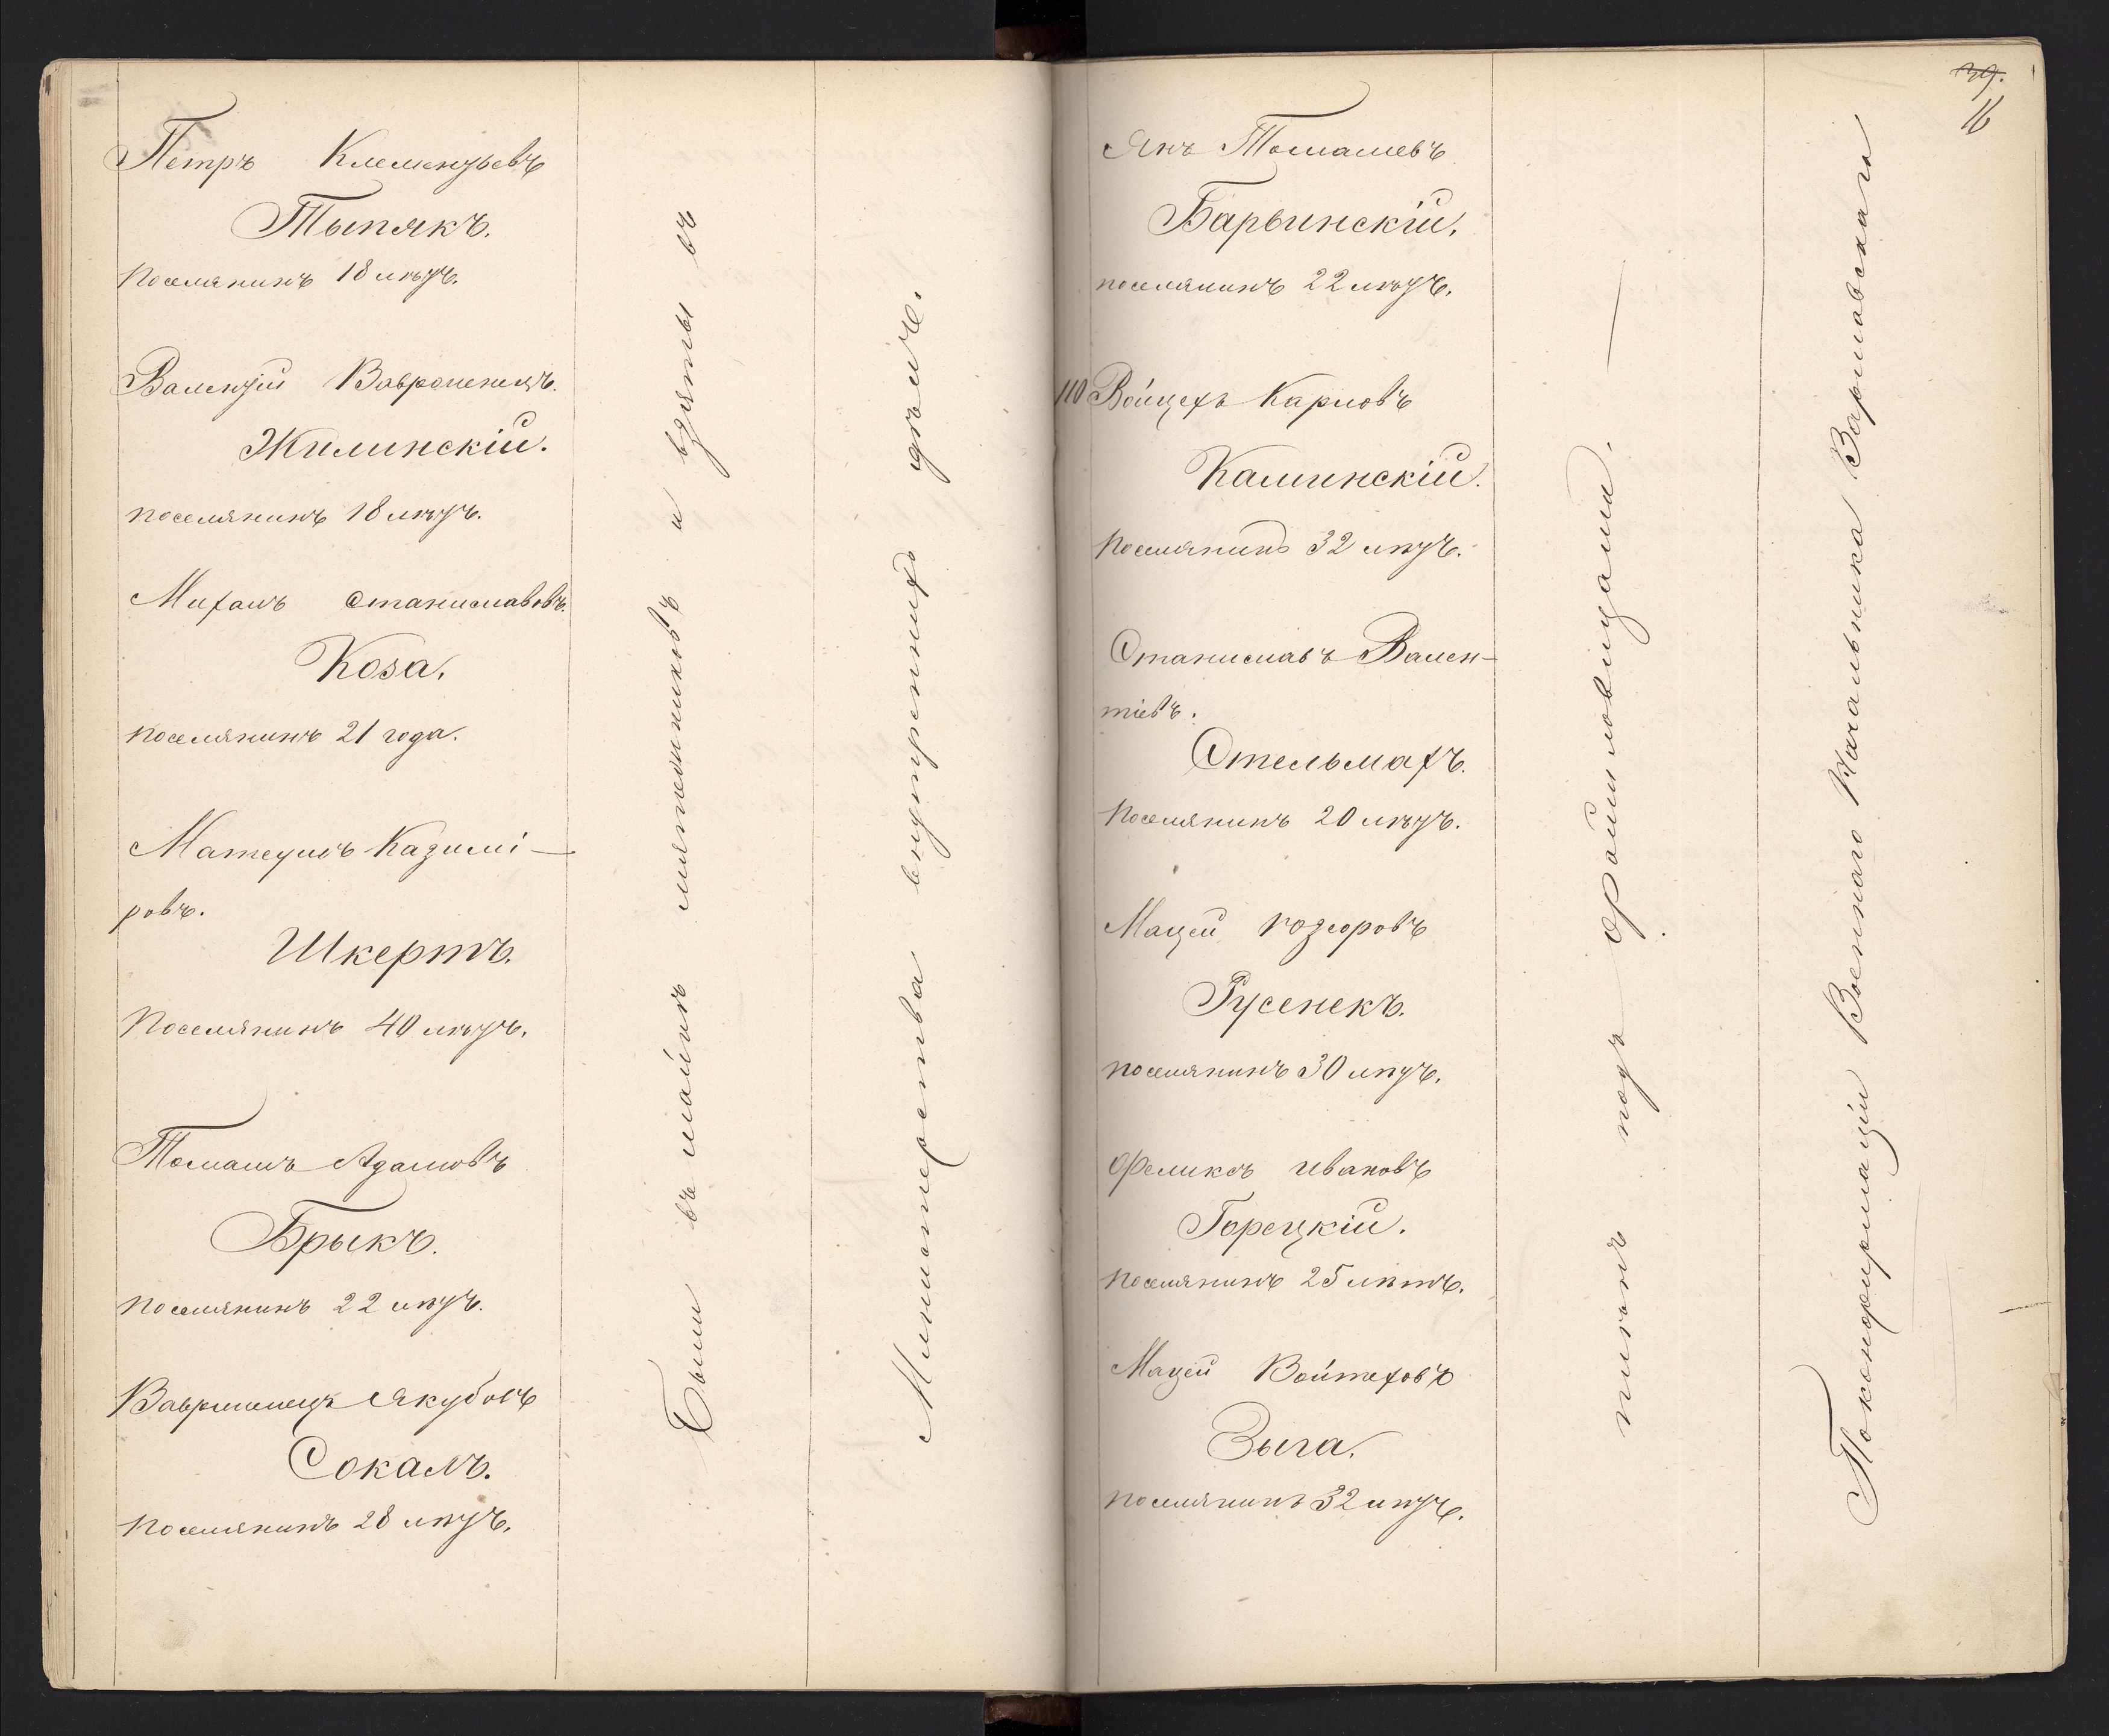 Петръ Клементьевъ
Тыпякъ.
поселянинъ 18 лѣтъ.
Валентій Вавроменецъ.
Жилинскій.
поселянинъ 18 лѣтъ.
Михалъ Станиславовъ.
Коза.
поселянинъ 21 года.
Матеушъ Казимі-
ровъ.
Шкертъ.
Поселянинъ 40 лѣтъ.
Томашъ Адамовъ
Брыкъ.
поселянинъ 22 лѣтъ.
Вавршинецъ Якубовъ
Сокалъ.
поселянинъ 28 лѣтъ.
Были въ шайкѣ мятежниковъ и взяты въ
Министерства внутреннихъ дѣлъ.
39.
16
Янъ Томашевъ
Барвинскій.
поселянинъ 22 лѣтъ.
110 Войцехъ Карловъ
Калинскій.
поселянинъ 32 лѣтъ.
Станиславъ Вален-
тіевъ.
Стельмахъ.
поселянинъ 20 лѣтъ.
Мацей
Русенекъ.
поселянинъ 30 лѣтъ.
Феликсъ Ивановъ
Горецкій.
поселянинъ 25 лѣтъ.
Мацей Войтеховъ
Зыга.
поселянинъ 32 лѣтъ.
плѣнъ подъ Файславицами.
По конфирмаціи Военнаго Начальника Варшавскаго